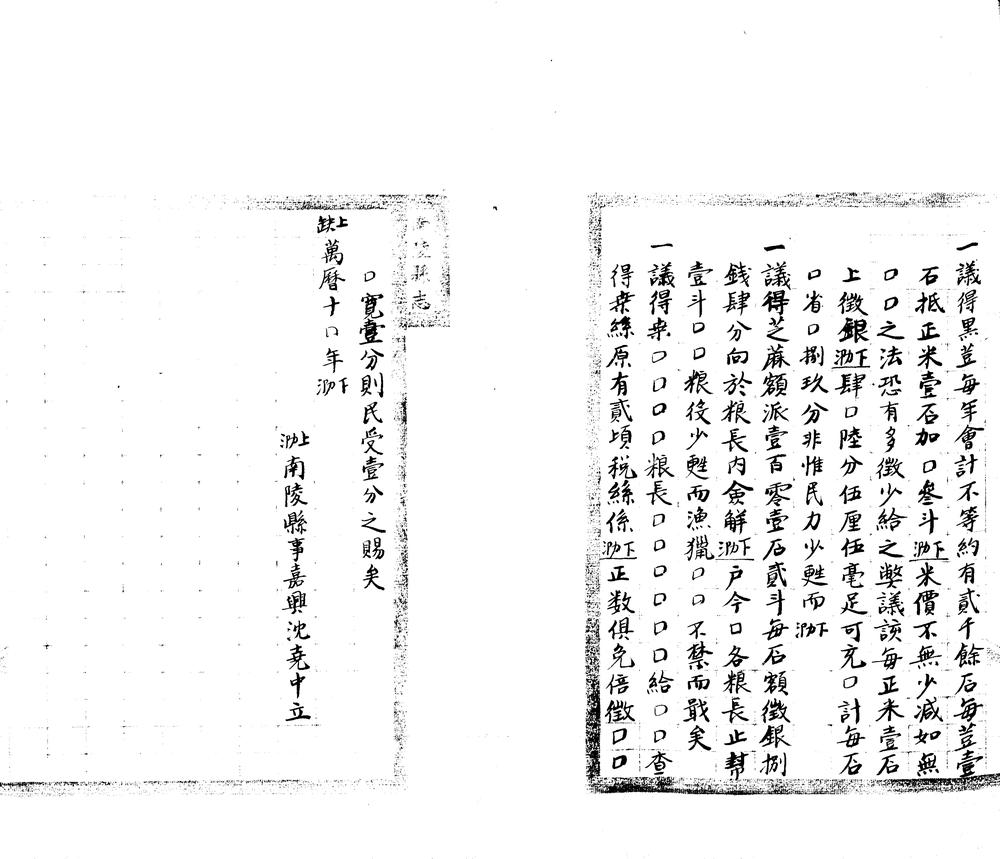 一議得黑荳每年會計不等約有貳千餘石每荳壹
石抵正米壹石加口叁斗泐下米價不無少減如無
口口之法恐有多徵少給之獘議該每正米壹石
上徵銀泐下肆口陸分伍厘伍毫足可充口計每石
口省口捌玖分非惟民力少甦而泐下
一議得芝蔴額派壹百零壹石貳斗每石額徵銀捌
錢肆分向於粮長內僉解泐下戶今口各粮長止幫
壹斗口口粮役少甦而漁獵口口不禁而戢矣
一議得桒口口口口粮長口口口口口口給口口查
得桒絲原有貳頃稅絲係泐下正数俱免倍徵口口
陵縣志
口寬壹分則民受壹分之賜矣
上缺萬曆十口年泐下
上泐南陵縣事嘉興沈堯中立